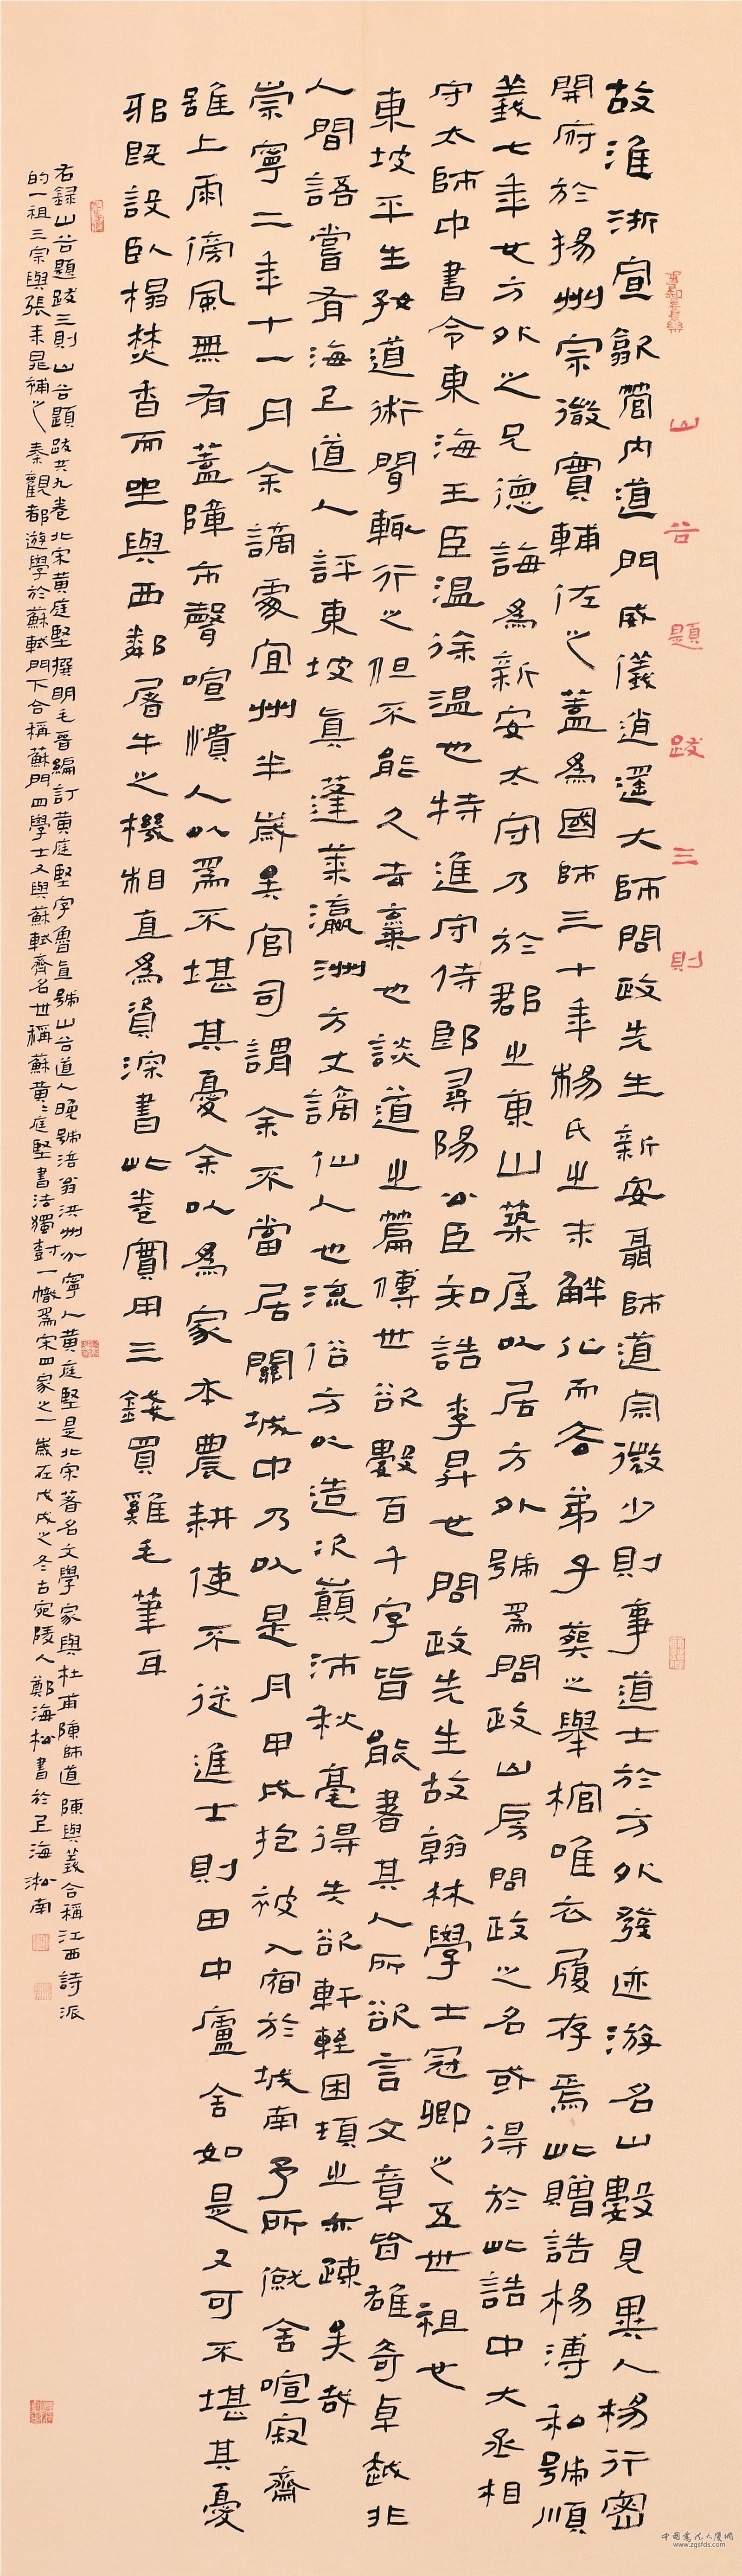 山谷題跋三則
故淮浙宣歙管内道門威儀逍遥大師問政先生新安聶師道宗微少則事道士於方外發迹游名山數見異人楊行密
開府於揚州宗微實輔佐之蓋為國師三十年楊氏之末解化而去弟子葬之舉棺唯衣履存焉此贈誥楊溥和號順
義七年也方外之兄德誨為新安太守乃於郡之東山築屋以居方外號為問政山房問政之名或得於此誥中大丞相
守太師中書令東海王臣温徐温也特進守侍郎尋陽公臣知誥李昇也問政先生故翰林學士冠卿之五世祖也
東坡平生好道術聞輒行之但不能久去棄也談道之篇傳世欲數百千字皆能書其人所欲言文章皆雄奇卓越非
人間語嘗有海上道人評東坡真蓬萊瀛洲方丈謫仙人也流俗方以造次顛沛秋毫得失欲軒輊困頓之亦疎矣哉
崇寧二年十一月余謫處宜州半歲矣官司謂余不當居關城中乃以是月甲戌抱被入宿於城南予所僦舍喧寂齋
雖上雨傍風無有蓋障市聲喧憒人以為不堪其憂余以為家本農耕使不從進士則田中廬舍如是又可不堪其憂
邪既設臥榻焚香而坐與西鄰屠牛之機相直為資深書此卷實用三錢買雞毛筆耳
右錄山谷題跋三則山谷題跋共九卷北宋黃庭堅撰明毛晉編訂黃庭堅字魯直號山谷道人晚號涪翁洪州分寧人黃庭堅是北宋著名文學家與杜甫陳師道陳與義合稱江西詩派
的一祖三宗與張耒晁補之秦觀都遊學於蘇軾門下合稱蘇門四學士又與蘇軾齊名世稱蘇黃黃庭堅書法獨樹一幟為宋四家之一歲在戊戌之冬古宛陵人鄭海松書於上海淞南
中國書法大廈網
www.zgsfds.com